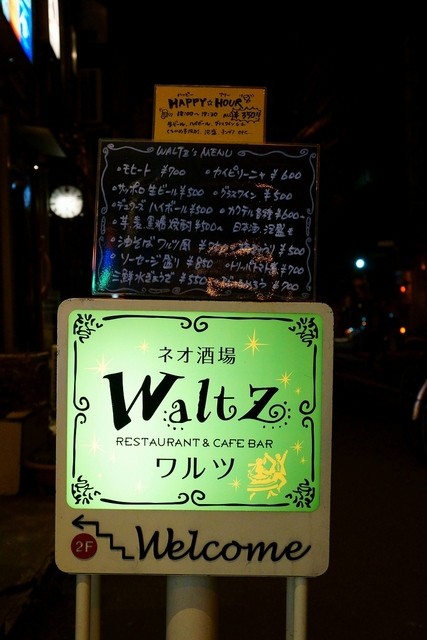 HAPPY☆HOUR
18:00〜19:30 ALL ¥350
WALTZ's MENU
・モヒート ¥700 ・カイピリーニャ ¥600
・サッポロ生ビール ¥500 ・グラスワイン ¥500
・デュワーズハイボール ¥500 ・カクテル各種 ¥600〜
・芋、麦、黒糖焼酎 ¥500〜 日本酒
・油そばワルツ風 ¥500
・ソーセージ盛り ¥850 ¥700
・三鮮水ぎょうざ ¥550 ¥700
ネオ酒場
Waltz
RESTAURANT & CAFE BAR
ワルツ
2F Welcome